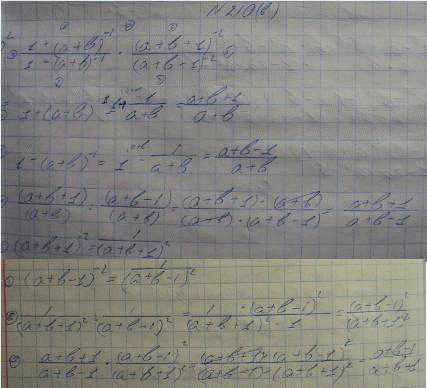 N 210(б)
1+(a+b)⁻¹ / 1-(a+b)⁻¹ · (a+b+1)⁻² / (a+b-1)⁻²
1+(a+b)⁻¹ = 1 + 1/(a+b) = (a+b+1)/(a+b)
1-(a+b)⁻¹ = 1 - 1/(a+b) = (a+b-1)/(a+b)
(a+b+1)/(a+b) : (a+b-1)/(a+b) = (a+b+1)·(a+b) / (a+b)·(a+b-1) = (a+b+1)/(a+b-1)
(a+b+1)⁻² = 1/(a+b+1)²
(a+b-1)⁻² = 1/(a+b-1)²
1/(a+b+1)² : 1/(a+b-1)² = 1·(a+b-1)² / (a+b+1)²·1 = (a+b-1)²/(a+b+1)²
(a+b+1)/(a+b-1) · (a+b-1)²/(a+b+1)² = (a+b+1)·(a+b-1)² / (a+b-1)·(a+b+1)² = (a+b-1)/(a+b+1)